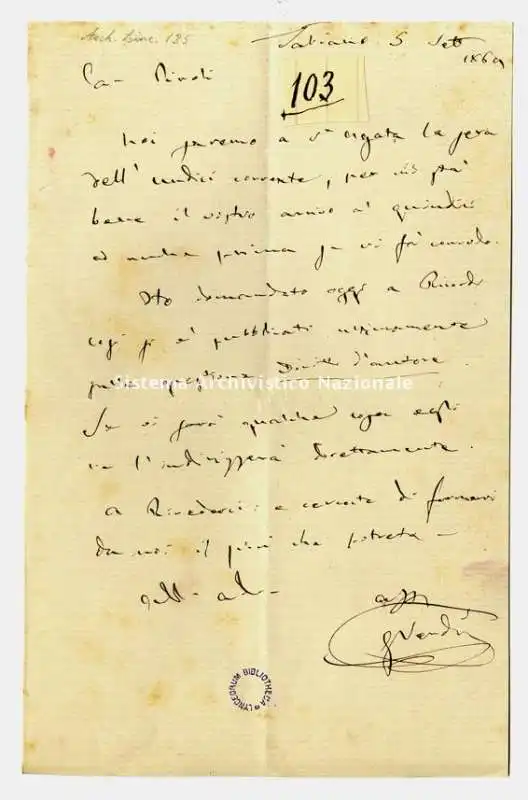 Arch. Linc. 125
Tabiano 5 Set
1869
Car Piroli
103
Noi saremo a S. Agata la sera
dell' undici corrente, per ciò sta
bene il vostro arrivo al quindici
ed anche prima se vi fa comodo.
Ho domandato oggi a Ricordi
cosa si è pubblicato ultimamente
sulla questione Diritti d'autore.
Sistema Archivistico Nazionale
Se vi sarà qualche cosa egli
ve l'indirizzerà direttamente.
A Rivederci: e cercate di fermarvi
da noi il più che potrete –
G Verdi
LYNCEORUM BIBLIOTHECA